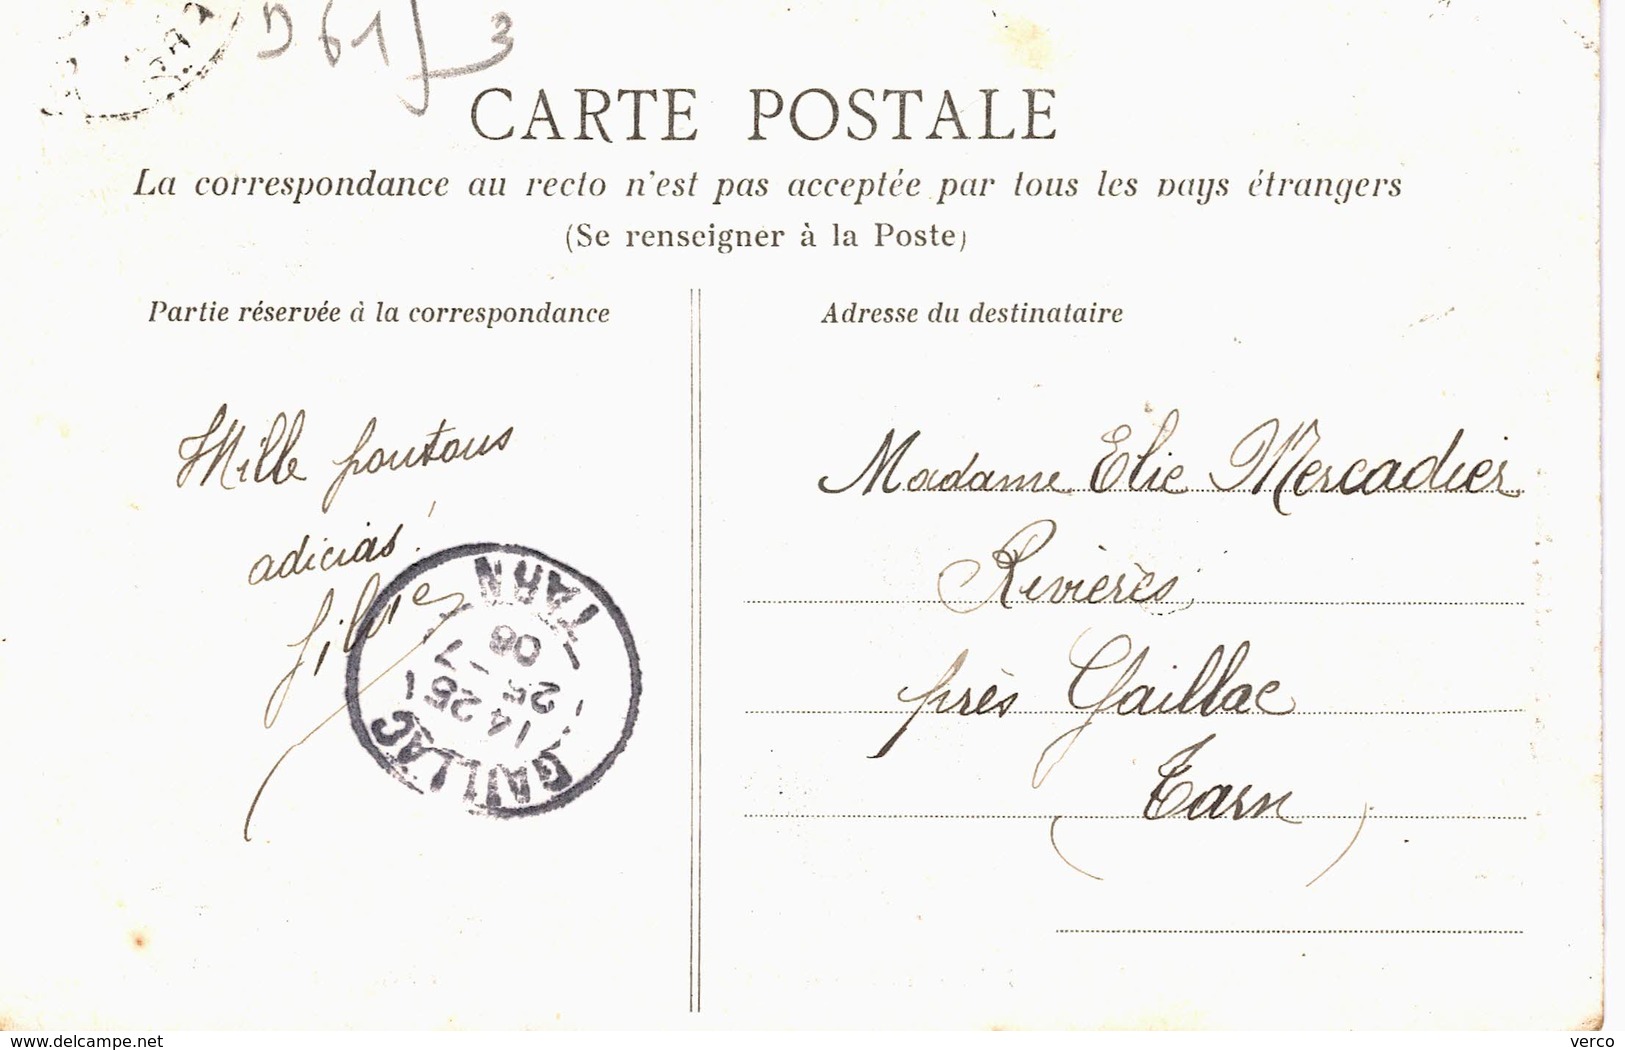 D 61 3
CARTE POSTALE
La correspondance au recto n'est pas acceptée par tous les pays étrangers
(Se renseigner à la Poste)
Partie réservée à la correspondance
Adresse du destinataire
Mille poutous
adicias!
GAILLAC
14 25
25 - 7
08
TARN
Madame Elie Mercadier
Rivières
près Gaillac
(Tarn)
www.delcampe.net
verco